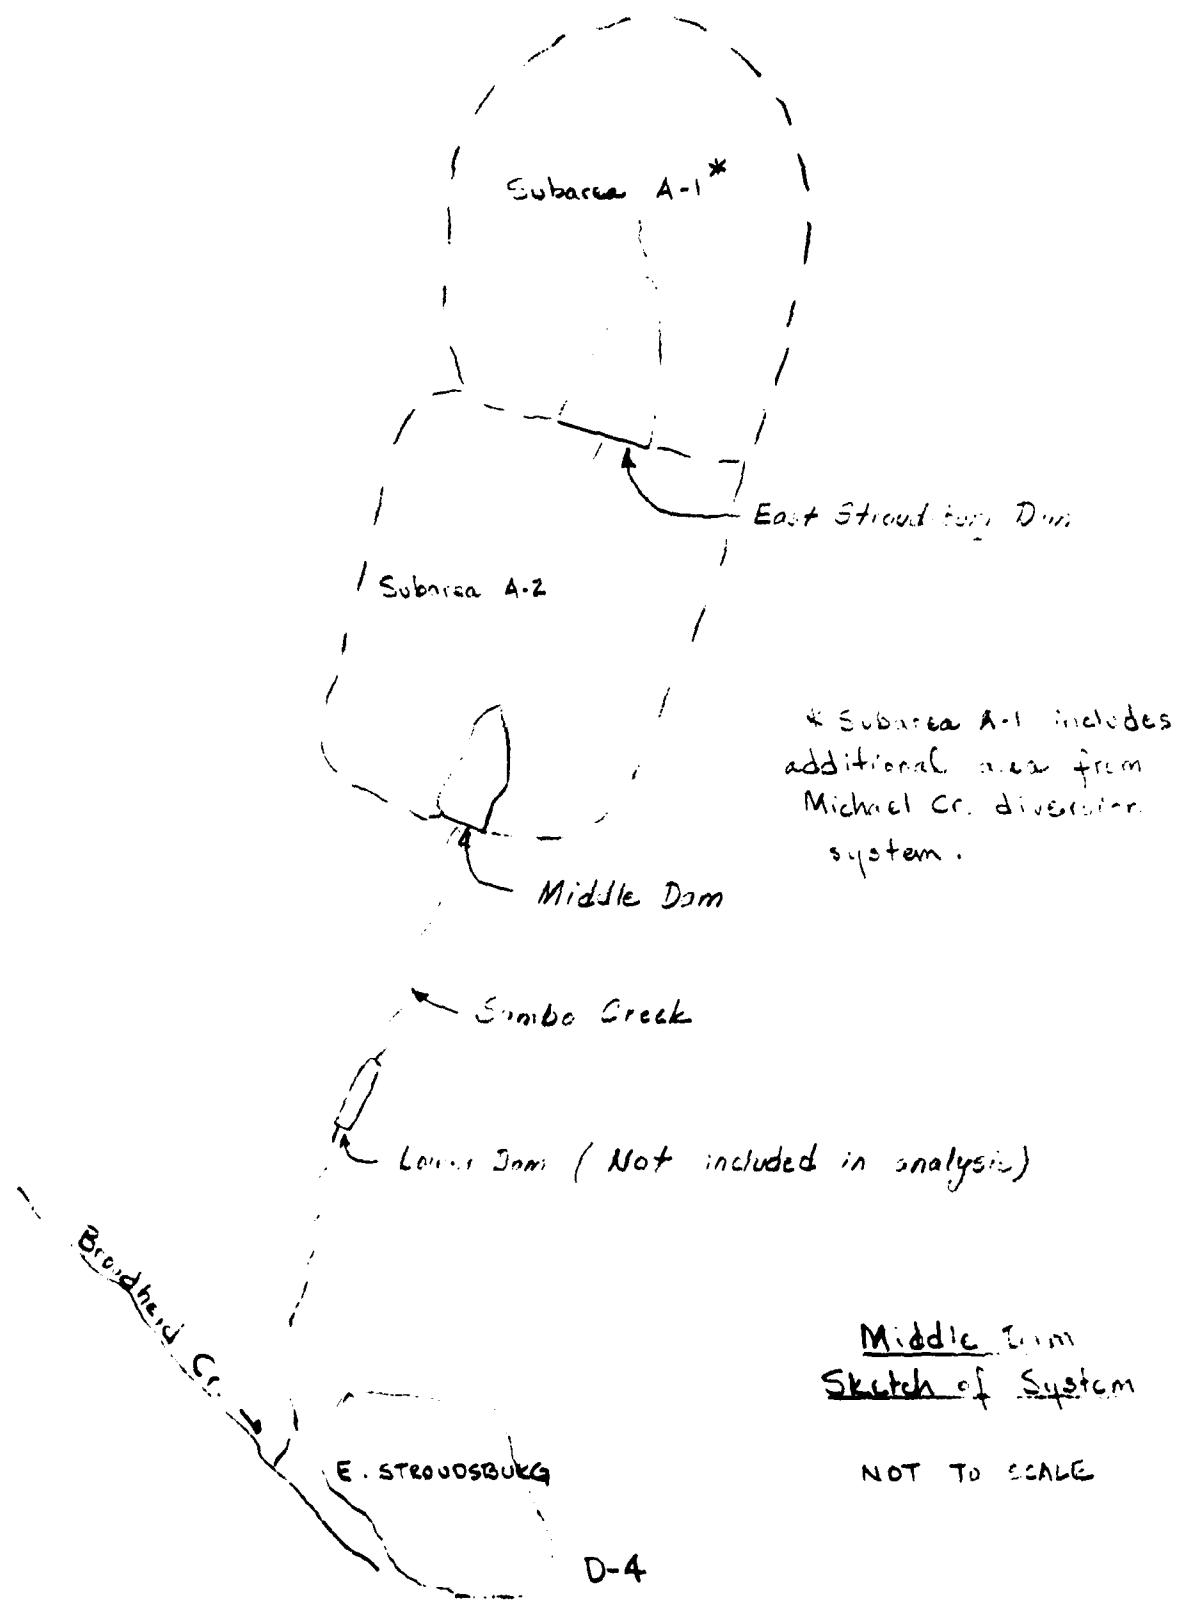 Subarea A-1*
East Stroudsburg Dam
Subarea A-2
* Subarea A-1 includes
additional area from
Michael Cr. diversion
system.
Middle Dam
Sambo Creek
Lower Dam (Not included in analysis)
Broadhead Cr.
Middle Dam
Sketch of System
E. STROUDSBURG
NOT TO SCALE
D-4